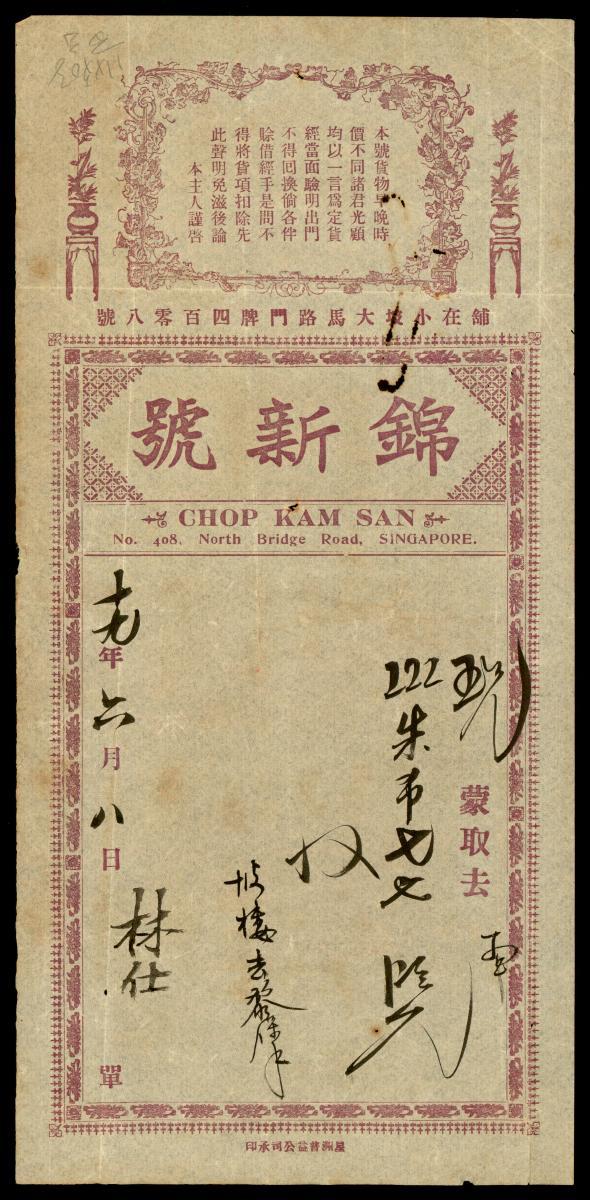 本號貨物早晚時
價不同諸君光顧
均以一言爲定貨
經當面驗明出門
不得回換倘各伴
賒借經手是問不
得將貨項扣除先
此聲明免滋後論
本主人謹啓
舖在小坡大馬路門牌四百零八號
錦新號
CHOP KAM SAN
No. 408, North Bridge Road, SINGAPORE.
蒙取去
222朱布
林仕
年六月八日
單
星洲普益公司承印